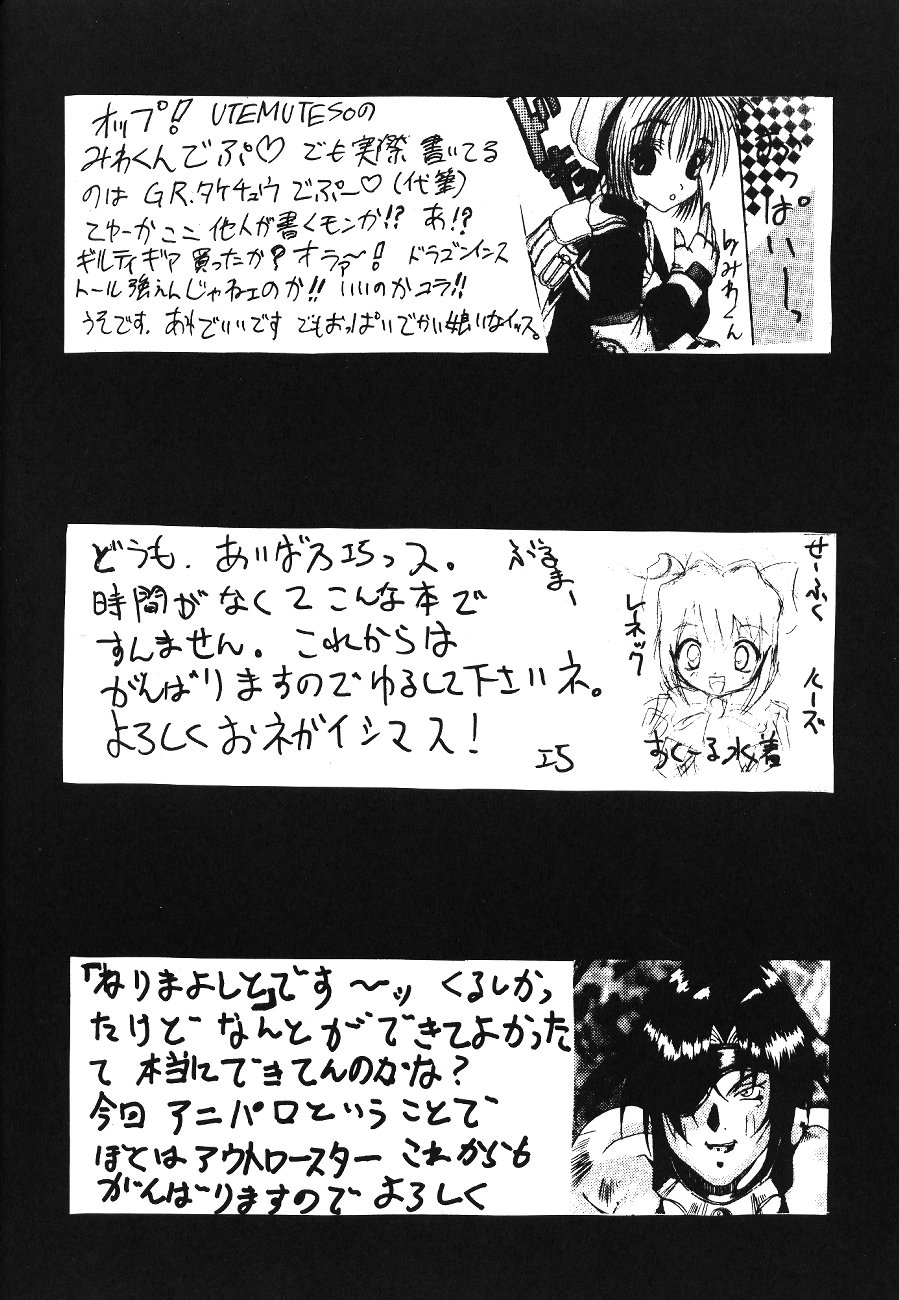 オップ! UTEMUTESOの
みわくんでぷ♡ でも実際 書いてる
のは G.R.タケチュウ でぷー♡(代筆)
てゆーか ここ 他人が書くモンか!? あ!?
ギルティギア 買ったか? オラァ〜! ドラゴンインス
トール強えんじゃねェのか!! いいのかコラ!!
うそです. あれでいいです でもおっぱいでかい娘いなイッス。
おっぱい〜っ
byみわくん
どうも. あいば巧っス。
時間がなくてこんな本で
すんません。これからは
がんばりますのでゆるして下さいネ。
よろしくおネガイシマス!
巧
ぶるまー
せーふく
レーネック
ルーズ
すくーる水着
「ねりまよしと」です 〜ッ くるしかっ
たけど なんとかできてよかった
て 本当にできてんのかな?
今回 アニパロということで
ぼくはアウトロースター これからも
がんばりますので よろしく